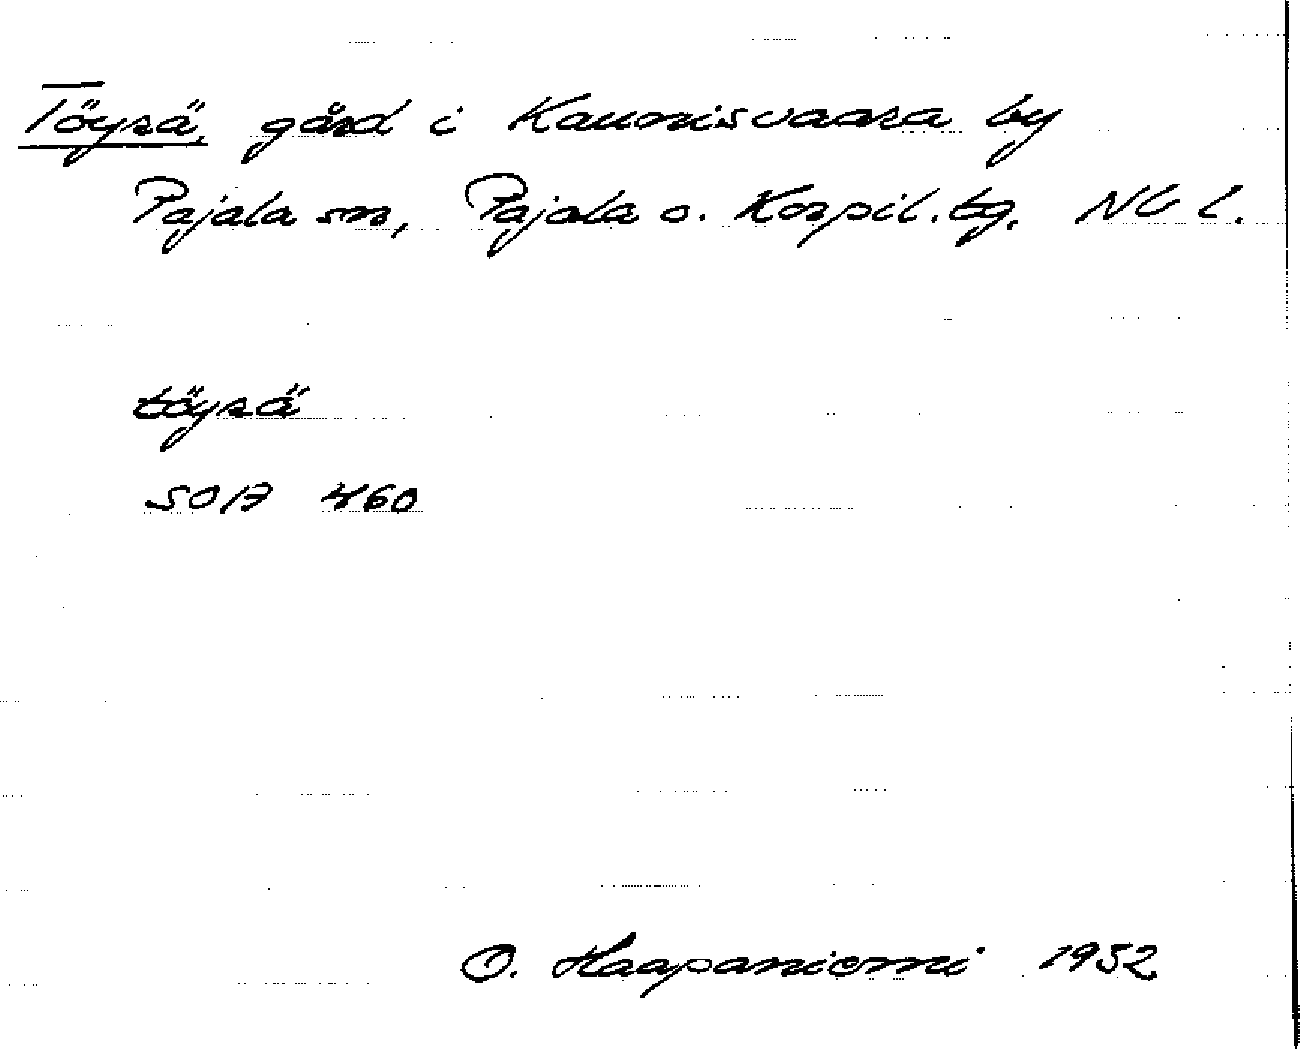 Töyrä, gård i Kaunisvaara by
Pajala sn, Pajala o. Korpil. tg. Nb l.
töyrä
SOA 460
O. Haapaniemi 1952